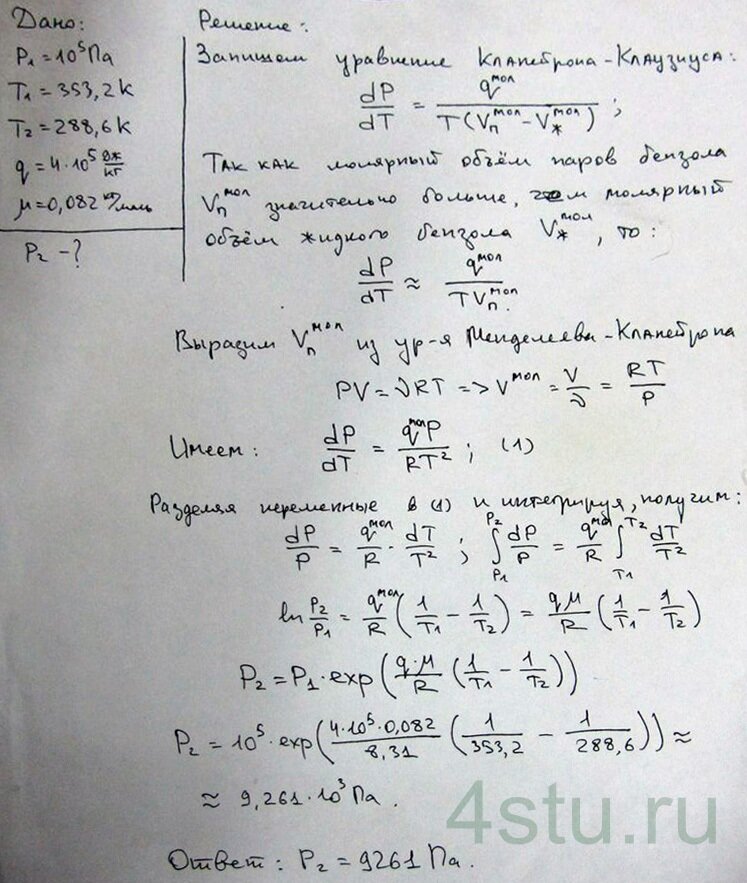 Дано:
P₁ = 10⁵ Па
T₁ = 353,2 К
T₂ = 288,6 К
q = 4·10⁵ Дж/кг
μ = 0,082 кг/моль
P₂ - ?
Решение:
Запишем уравнение Клапейрона-Клаузиуса:
dP/dT = q^мол / T(Vп^мол - Vж^мол) ;
Так как молярный объём паров бензола
Vп^мол значительно больше, чем молярный
объём жидкого бензола Vж^мол, то:
dP/dT ≈ q^мол / TVп^мол.
Выразим Vп^мол из ур-я Менделеева-Клапейрона
PV = νRT => V^мол = V/ν = RT/P
Имеем: dP/dT = q^мол P / RT² ; (1)
Разделяя переменные в (1) и интегрируя, получим:
dP/P = q^мол/R · dT/T² ; ∫_P₁^P₂ dP/P = q^мол/R ∫_T₁^T₂ dT/T²
ln P₂/P₁ = q^мол/R (1/T₁ - 1/T₂) = qμ/R (1/T₁ - 1/T₂)
P₂ = P₁·exp(q·μ/R (1/T₁ - 1/T₂))
P₂ = 10⁵·exp(4·10⁵·0,082/8,31 (1/353,2 - 1/288,6)) ≈
≈ 9,261·10³ Па.
Ответ: P₂ = 9261 Па.
4stu.ru